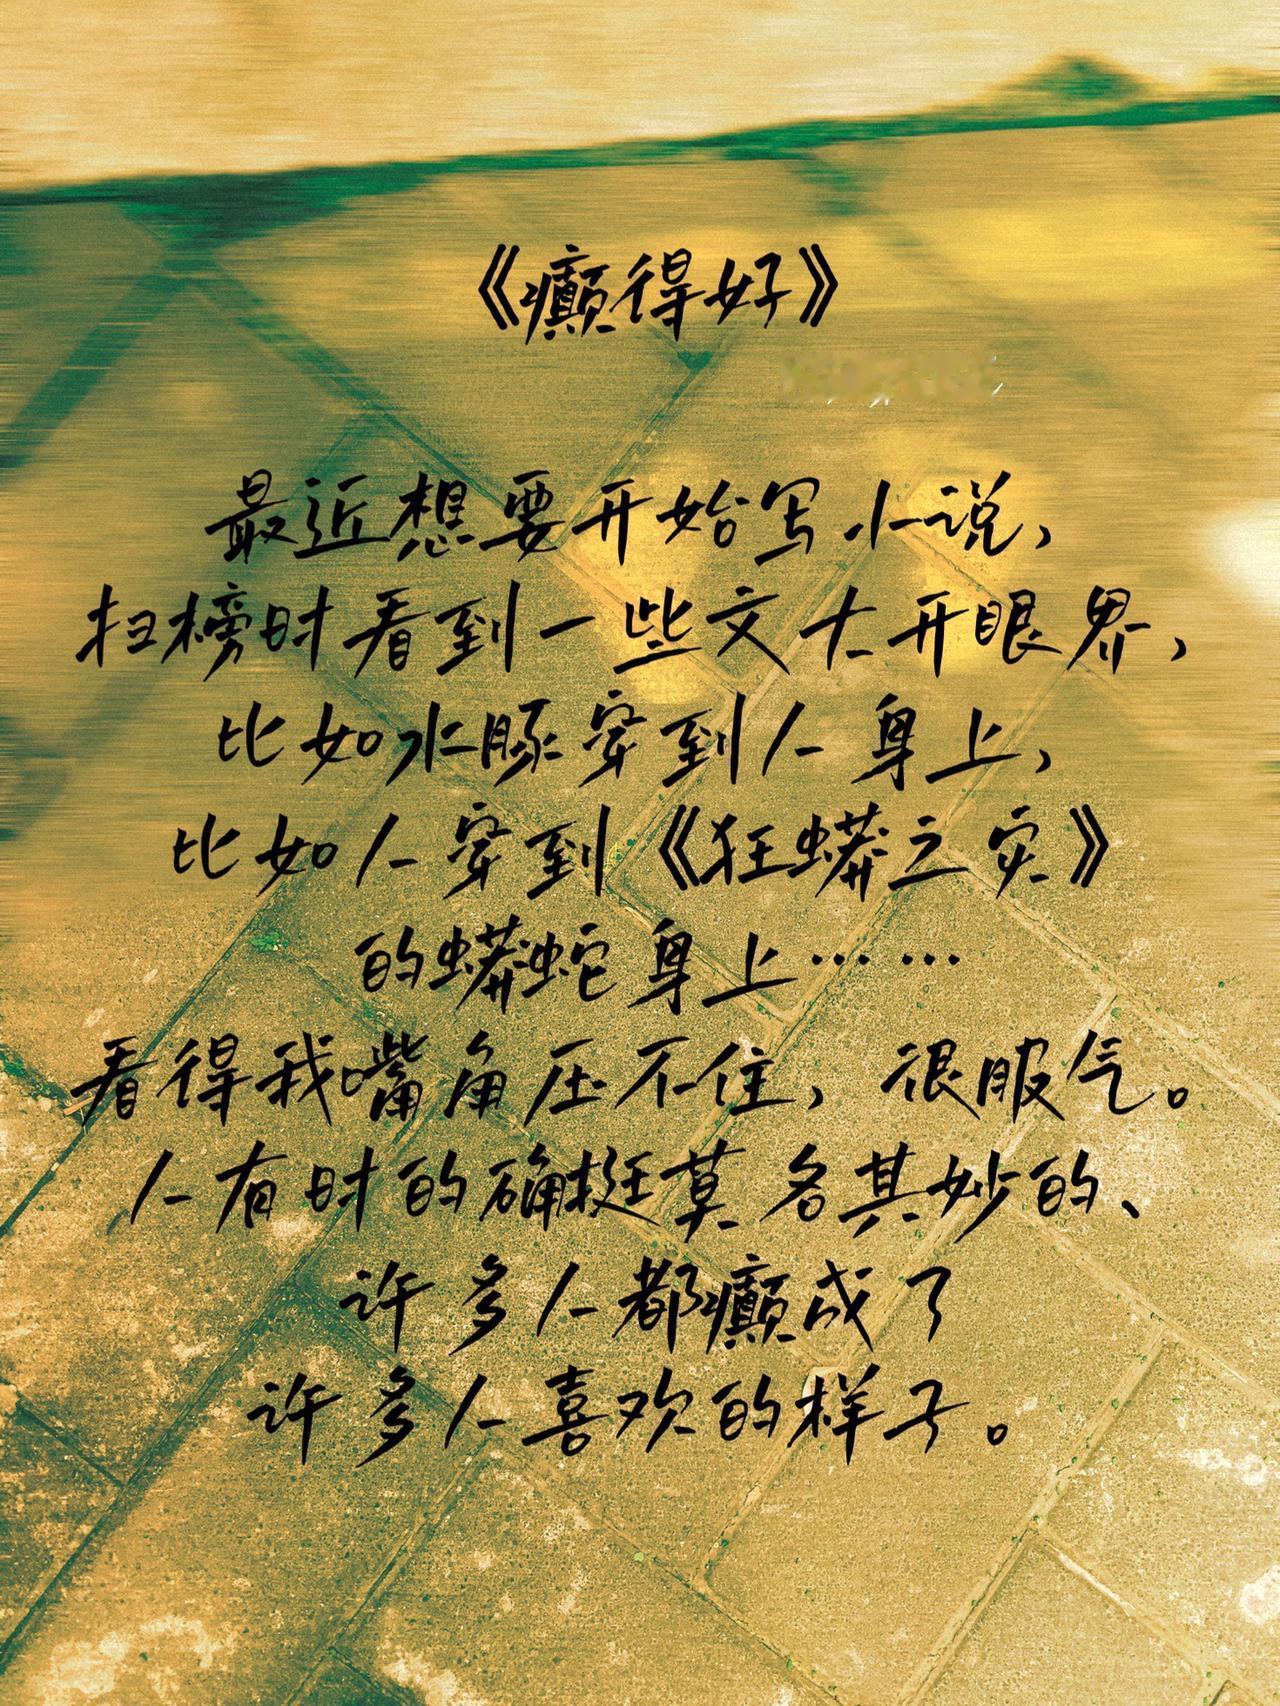 《癫得好》
最近想要开始写小说，
扫榜时看到一些文大开眼界，
比如水豚穿到人身上，
比如人穿到《狂蟒之灾》
的蟒蛇身上……
看得我嘴角压不住，很服气。
人有时的确挺莫名其妙的、
许多人都癫成了
许多人喜欢的样子。